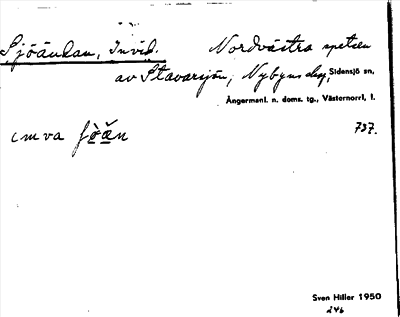 Sjöändan, Invid. Nordvästra spetsen
av Stavarsjön, Nybyns by, Sidensjö sn,
Ångermanl. n. doms. tg., Västernorrl. l.
737.
Sven Hiller 1950
246